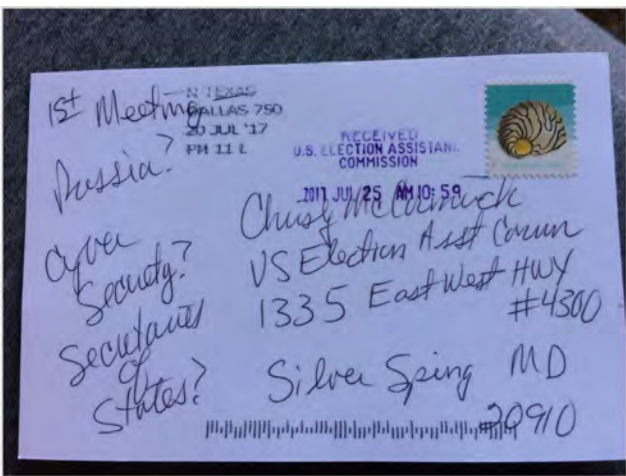 1st Meeting
Russia?
Cyber
Security?
Secretaries
of
States?
N TEXAS
DALLAS 750
20 JUL '17
PM 11 L
RECEIVED
U.S. ELECTION ASSISTANC
COMMISSION
2017 JUL 25 AM 10: 59
Christy McCormick
US Election Asst Comm
1335 East West HWY
#4300
Silver Sping MD
20910